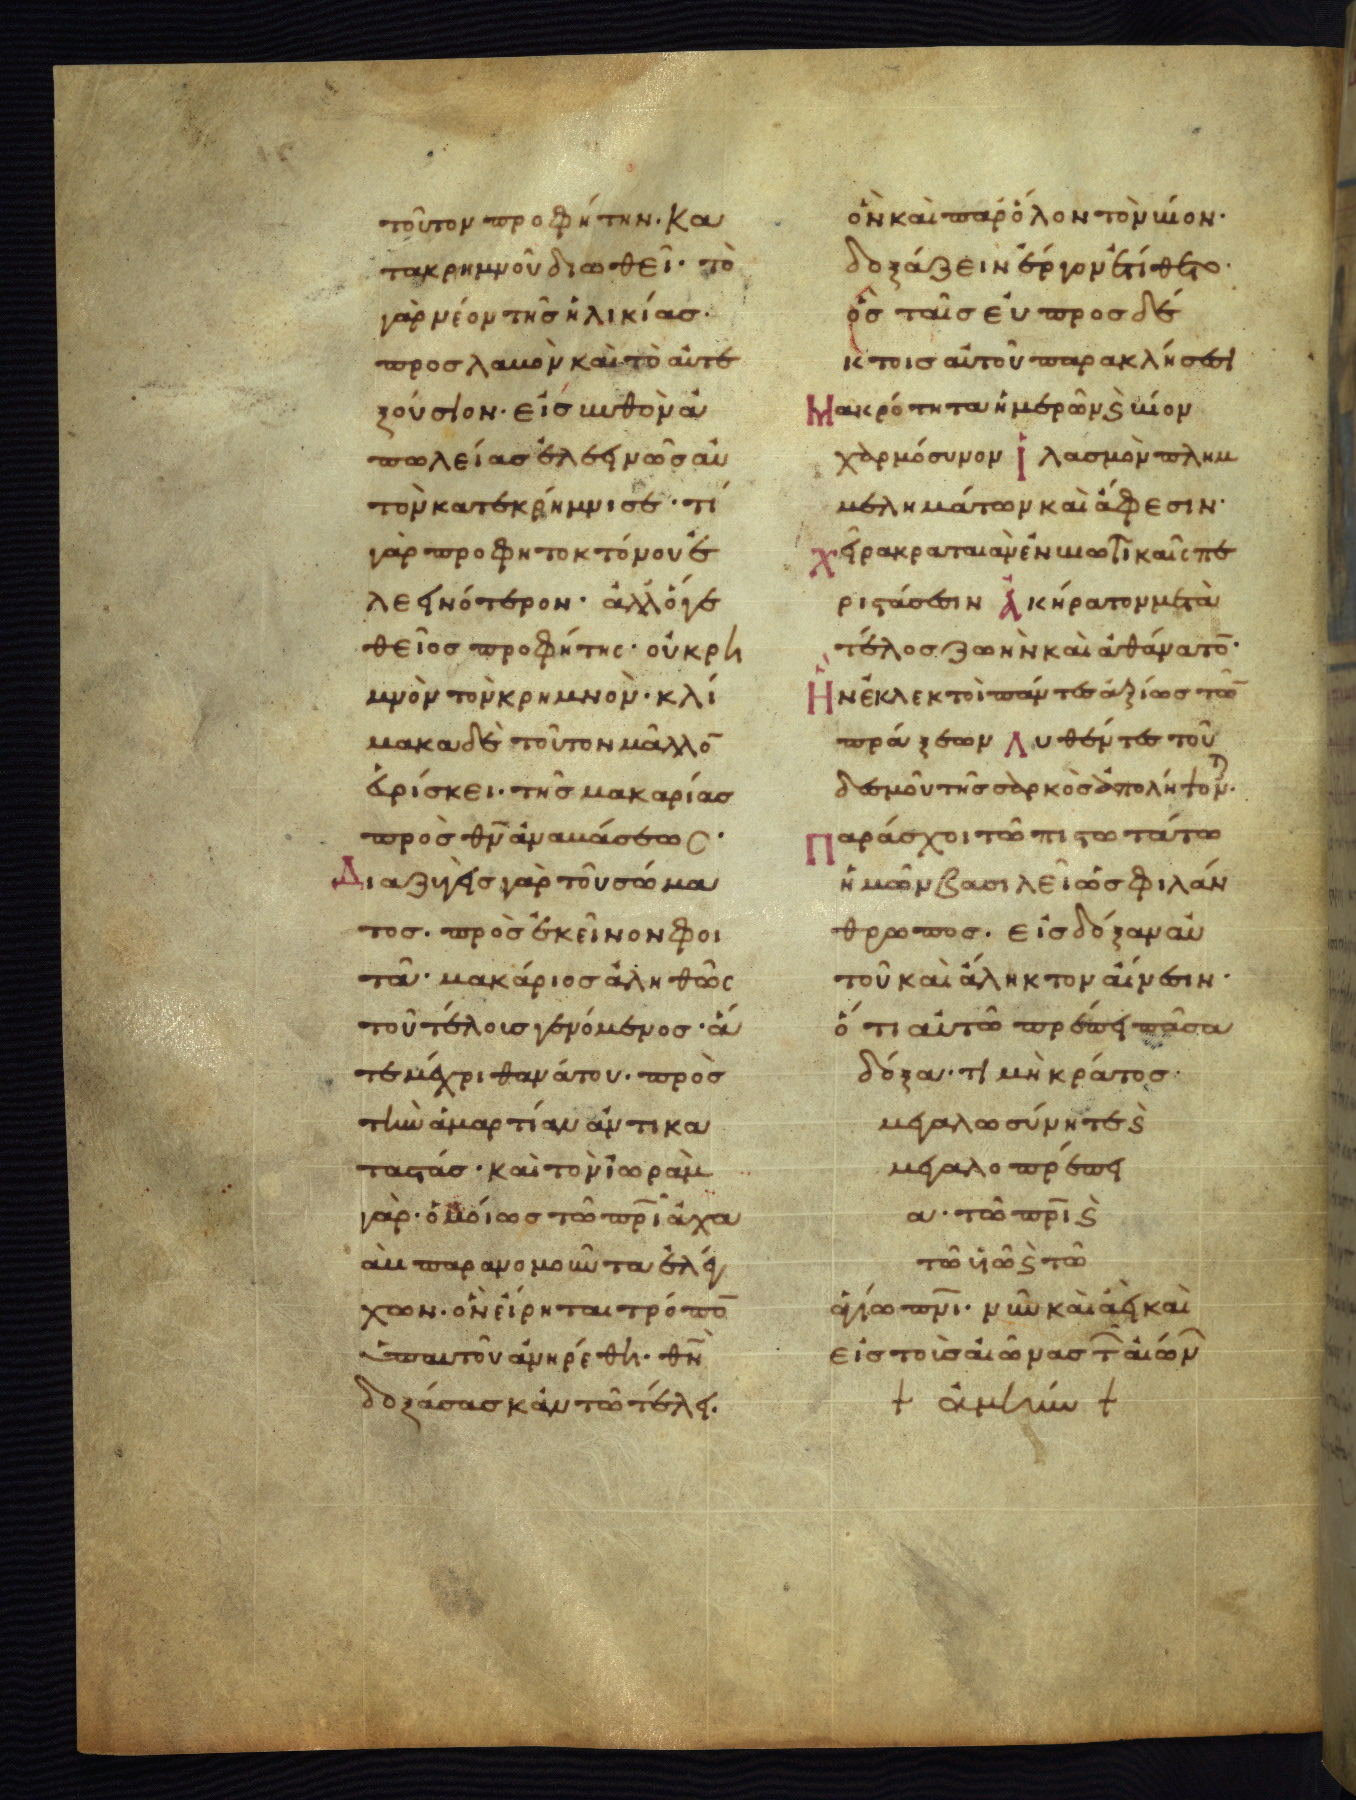 τοῦτον προφήτην· κα
τακρημνοῦ διωθεῖ· τὸ
γὰρ νέον τῆς ἡλικίας·
προσλαμὸν καὶ τὸ αὐτε
ξούσιον· εἰς βυθὸν ἀ
πωλείας ἐλεεινῶς αὐ
τὸν κατεκρήμνισε· τί
γὰρ προφητοκτόνου ἐ
λεεινότερον· ἀλλ' ὅγε
θεῖος προφήτης· οὐ κρη
μνὸν τὸν κρημνὸν· κλί
μακα δὲ τοῦτον μᾶλλο̅
εὑρίσκει· τῆς μακαρίας
πρὸς θν̅ ἀναβάσεως·
Διαζυγεὶς γὰρ τοῦ σώμα
τος· πρὸς ἐκεῖνον φοι
τᾶ· μακάριος ἀληθῶς
τοῦ τέλους γενόμενος· ἅ
τε μέχρι θανάτου· πρὸς
τὴν ἁμαρτίαν ἀντικα
ταστάς· καὶ τὸν ἰωρὰμ
γὰρ· ὁμοίως τῶ πρ̅ι ἀχα
ὰβ παρανομοῦντα ἐλέγ
χων· ὃν εἴρηται τρόπο̅
ὑπ αυτοῦ ἀνηρέθη· θν̅
δοξάσας κἀν τῶ τέλει·
ὃν καὶ παρ' ὅλον τὸν βίον·
δοξάζειν ἔργον ἐτίθετο·
ὃς ταῖς εὐπροσδέ
κτοις αὐτοῦ παρακλήσεσι
Μακρότητα ἡμερῶν ϛ̀ βίον
χαρμόσυνον Ἱλασμὸν πλημ
μελημάτων καὶ ἄφεσιν·
Χεῖρα κραταιὰν ἐν
ριστάσεσιν Ἀκήρατον μετὰ
τέλος ζωὴν καὶ ἀθάνατο̅·
Ἣν ἐκλεκτοὶ πάντες ἀξίως τῶ̅
πράξεων Λυθέντες τοῦ
δεσμοῦ τῆς σαρκὸς
Παράσχοι τῶ πιστωτάτω
ἡμῶν βασιλεῖ ὡς φιλάν
θρωπος· εἰς δόξαν αὐ
τοῦ καὶ ἄληκτον αἴνεσιν·
ὅτι αὐτῶ πρέπει πᾶσα
δόξα· τιμὴ κράτος·
μεγαλωσύνη τε ϛ̀
μεγαλοπρέπει
α· τῶ πρ̅ι ϛ̀
τῶ υἱῶ ϛ̀ τῶ
ἁγίω πν̅ι· νῦν καὶ ἀεὶ καὶ
εἰς τοὺς αἰῶνας τ̅ αἰών̅
† ἀμήν †